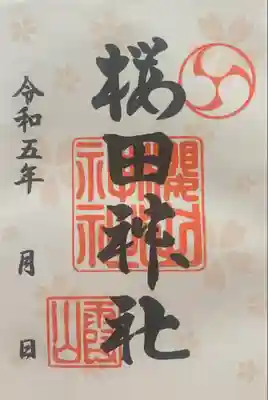 桜田神社
令和五年 月 日